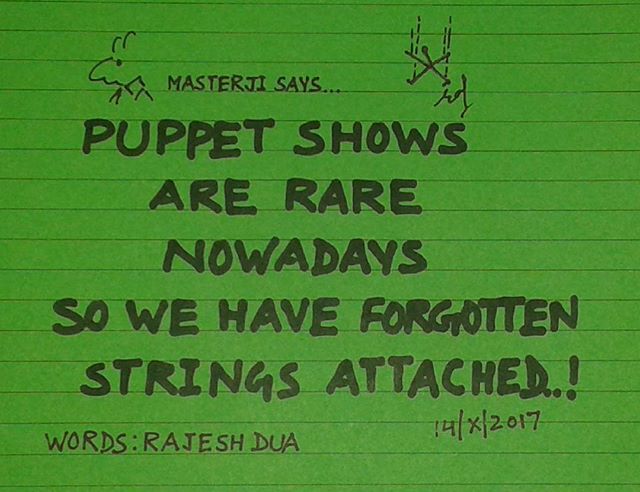 MASTERJI SAYS...
PUPPET SHOWS
ARE RARE
NOWADAYS
SO WE HAVE FORGOTTEN
STRINGS ATTACHED..!
14/X/2017
WORDS: RAJESH DUA